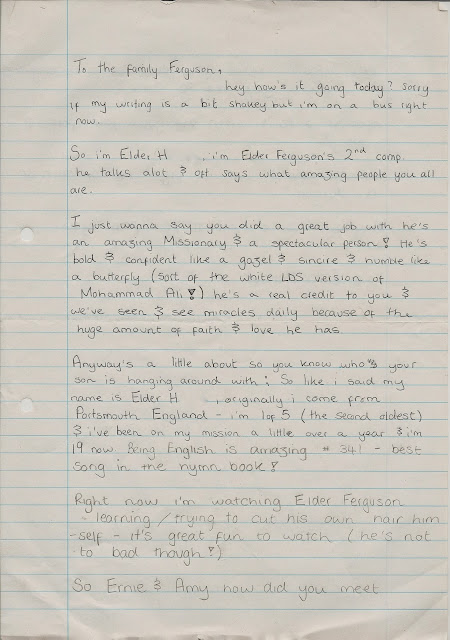 To the family Ferguson,
hey how's it going today? Sorry
if my writing is a bit shakey but i'm on a bus right
now.
So i'm Elder H , i'm Elder Ferguson's 2nd comp
he talks alot & oft says what amazing people you all
are.
I just wanna say you did a great job with he's
an amazing Missionary & a spectacular person! He's
bold & confident like a gazel & sincire & humble like
a butterfly (sort of the white LDS version of
Mohammad Ali!) he's a real credit to you &
we've seen & see miracles daily because of the
huge amount of faith & love he has.
Anyway's a little about so you know who's your
son is hanging around with; So like i said my
name is Elder H , originally i come from
Portsmouth England - i'm 1 of 5 (the second oldest)
& i've been on my mission a little over a year & i'm
19 now. Being English is amazing # 341 - best
song in the hymn book!
Right now i'm watching Elder Ferguson
- learning / trying to cut his own hair him
-self - it's great fun to watch (he's not
to bad though!)
So Ernie & Amy how did you meet